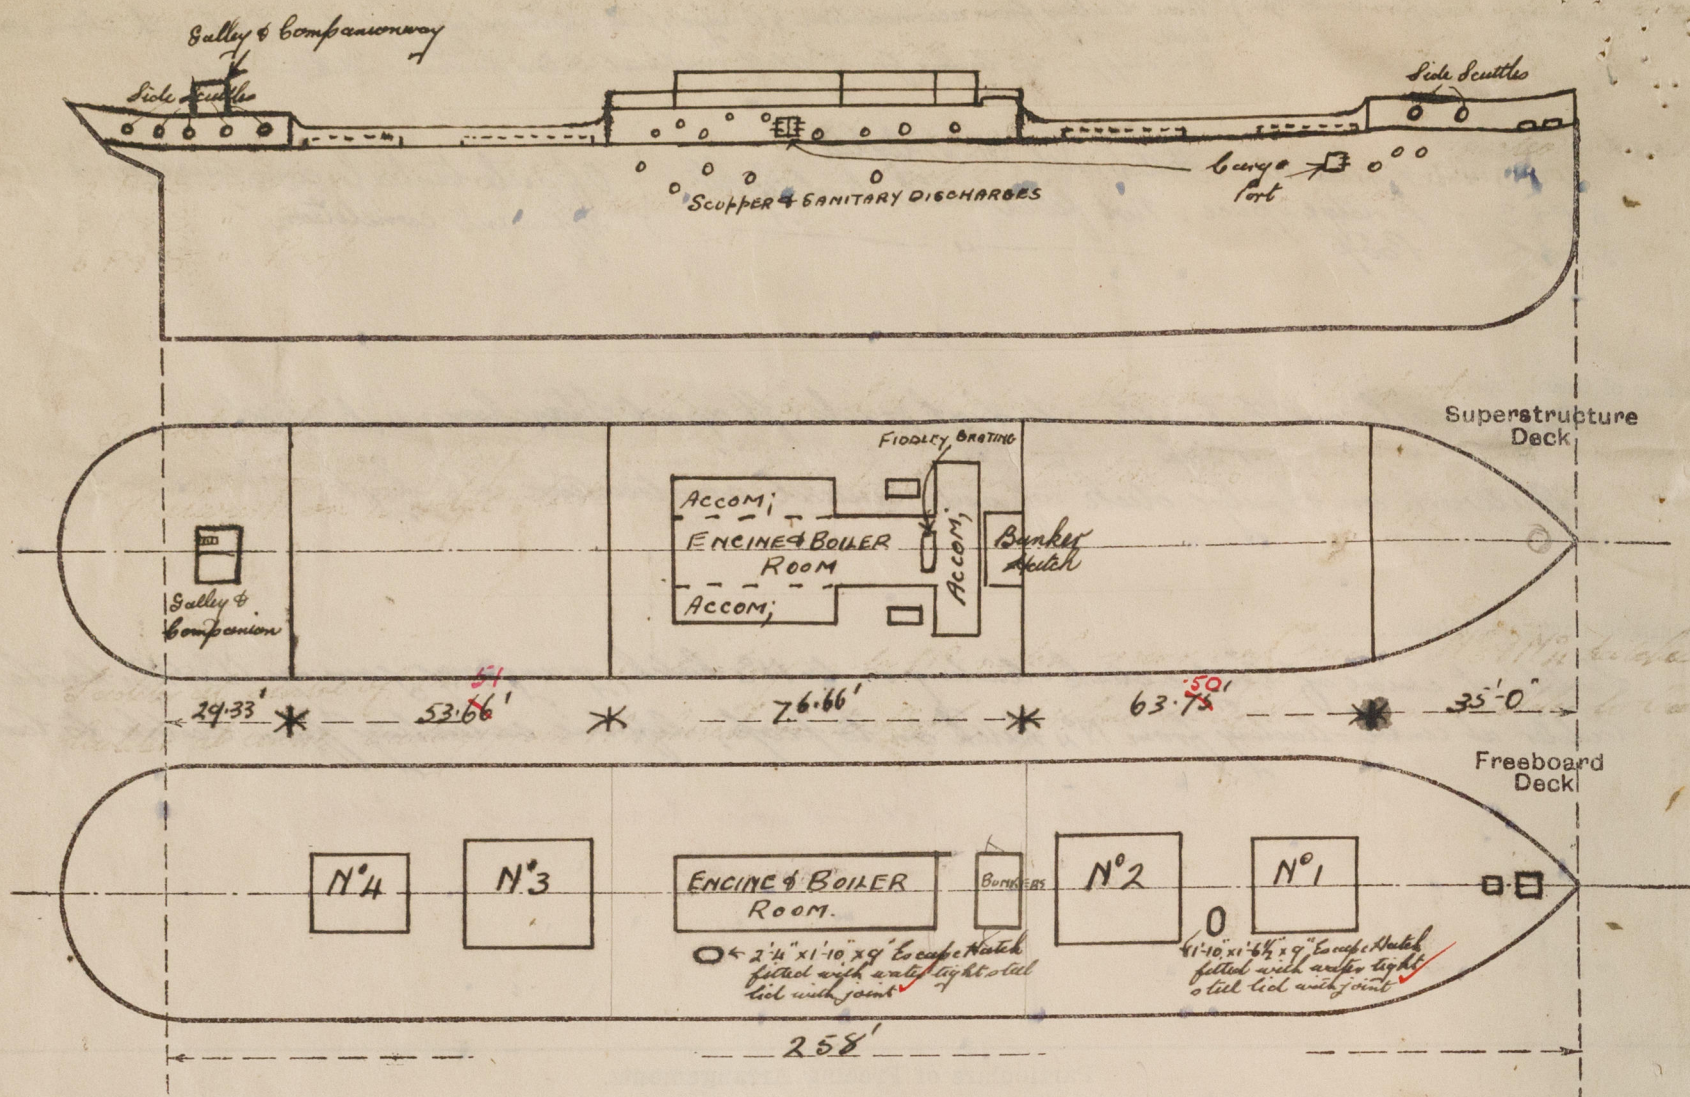 Galley & Companionway
Side Scuttles
Side Scuttles
Cargo
Port
SCUPPER & SANITARY DISCHARGES
Superstructure
Deck
FIDDLEY GRATING
ACCOM;
ENGINE & BOILER
ROOM
ACCOM;
ACCOM;
Bunker
Hatch
Galley &
Companion
51
50
29.33'
53.66'
76.66'
63.75'
35'-0"
Freeboard
Deck
No4
No3
ENGINE & BOILER
ROOM.
BUNKERS
No2
No1
2'-4" x 1'-10" x 9" Escape Hatch
fitted with water tight steel
lid with joint
1'-10" x 1'-6½" x 9" Escape Hatch
fitted with water tight
steel lid with joint
258'